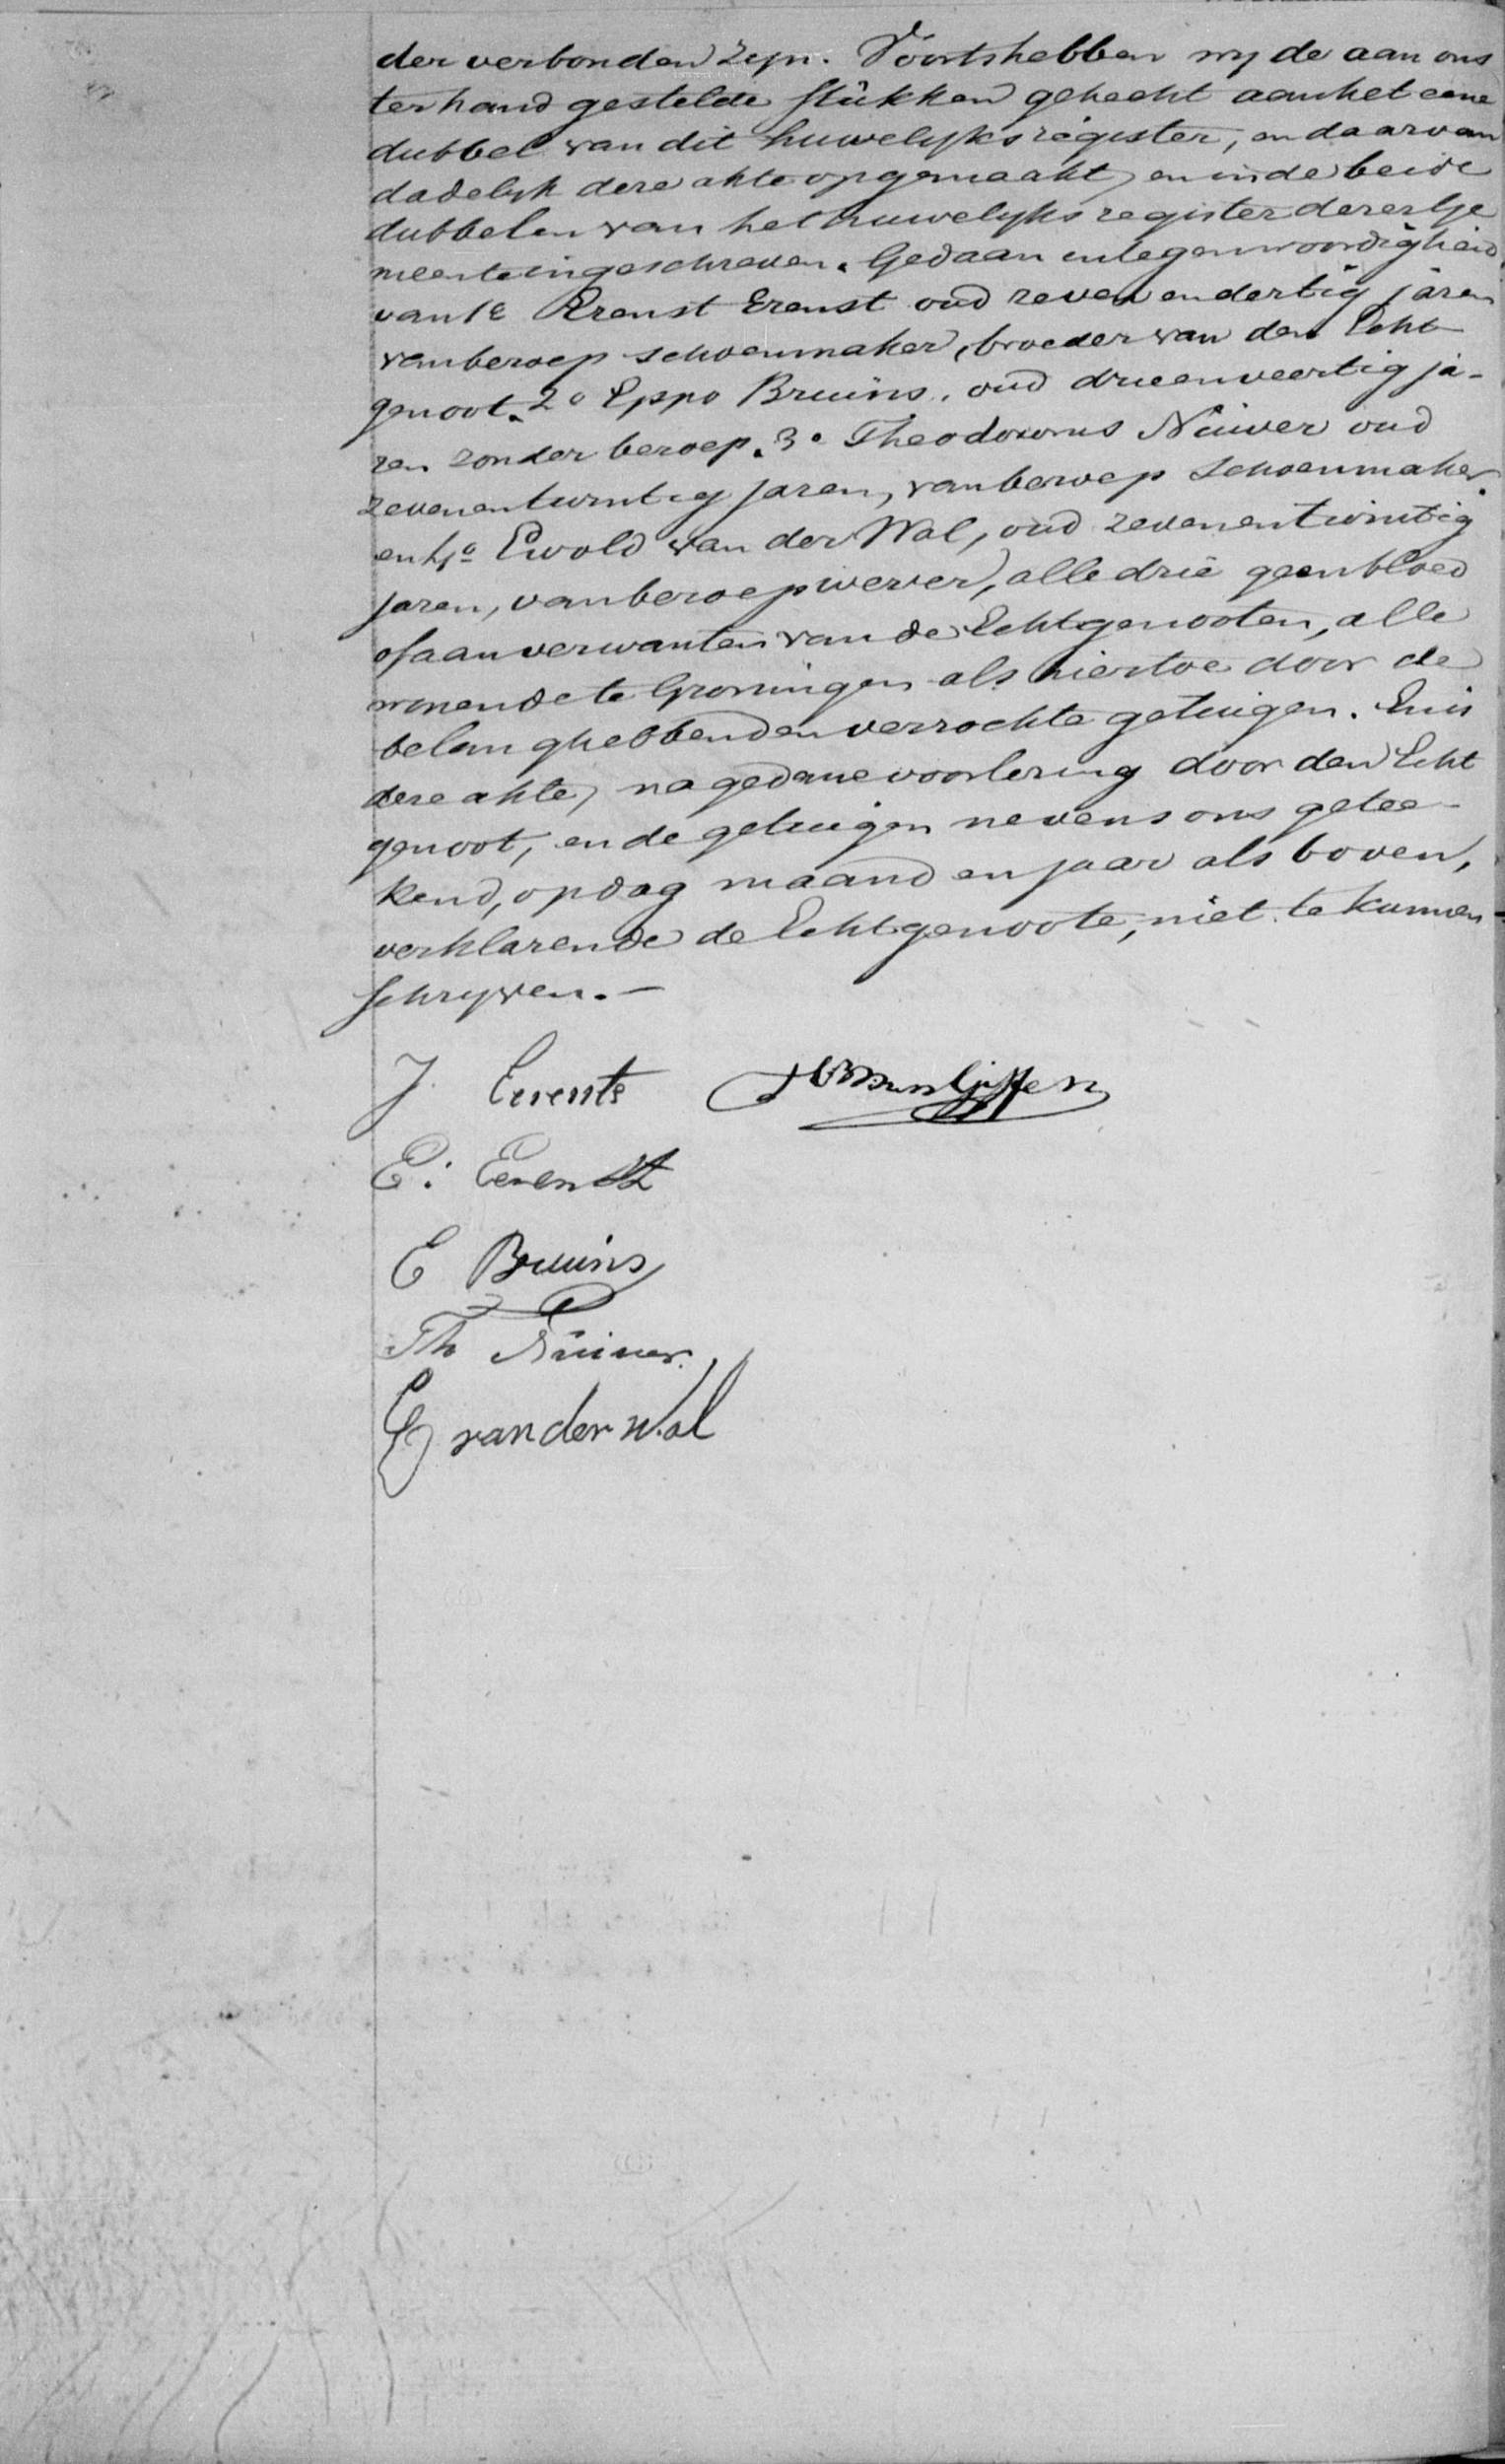 der verbonden zijn. Voorts hebben wij de aan ons
ter hand gestelde stukken gehecht aan het eene
dubbel van dit huwelijks register, en daarvan
dadelijk deze akte opgemaakt, en in de beide
dubbelen van het huwelijks register dezer Ge
meente ingeschreven. Gedaan in tegenwoordigheid
van 1e Erenst Erenst oud zeven en dertig jaren
van beroep schoenmaker, broeder van den Echt
genoot. 2o Eppo Bruins, oud drieenveertig ja-
ren zonder beroep. 3o Theodorus Nuiver oud
zevenentwintig jaren, van beroep schoenmaker
en 4o Ewold van der Wal, oud zevenentwintig
jaren, van beroep wever, alle drie geen bloed
of aanverwanten van de Echtgenooten, alle
wonende te Groningen als hiertoe door de
belanghebbenden verzochte getuigen. En is
deze akte, na gedane voorlezing door den Echt
genoot, en de getuigen nevens ons getee-
kend, op dag maand en jaar als boven,
verklarende de Echtgenoote, niet te kunnen
schrijven. -
J. Erents
E. Erenst
E Bruins
Th Nuiver
E van der Wal